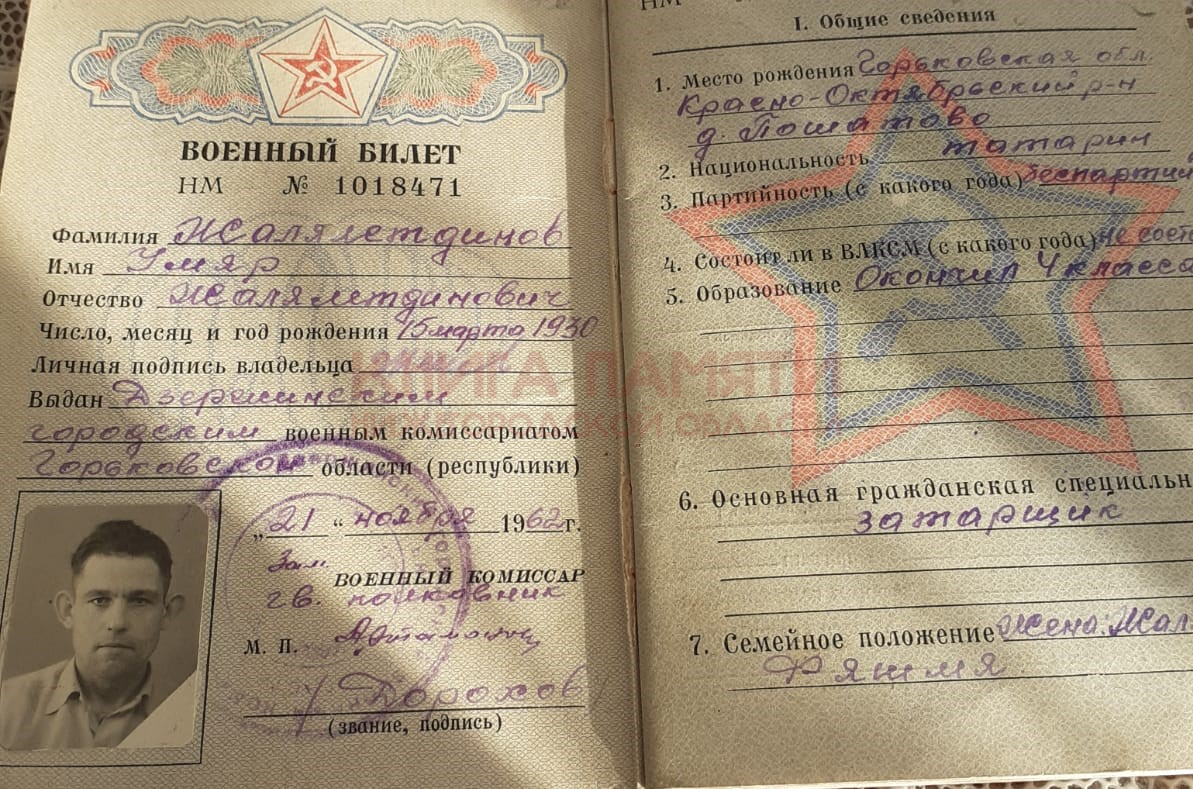 ВОЕННЫЙ БИЛЕТ
НМ № 1018471
Фамилия Жалялетдинов
Имя Умяр
Отчество Жалялетдинович
Число, месяц и год рождения 15 марта 1930
Личная подпись владельца
Выдан Дзержинским
городским военным комиссариатом
Горьковской области (республики)
„21 “ ноября 1962 г.
Зам.
ВОЕННЫЙ КОМИССАР
гв. полковник
М. П.
Дорохов
(звание, подпись)
НМ
I. Общие сведения
1. Место рождения Горьковская обл.
Красно-Октябрьский р-н
д. Пошатово
2. Национальность татарин
3. Партийность (с какого года) беспартий
4. Состоит ли в ВЛКСМ (с какого года) не сост
5. Образование Окончил 4 класса
6. Основная гражданская специальн
затарщик
7. Семейное положение Жена: Жал.
Фяимя
КНИГА ПАМЯТИ
НИЖЕГОРОДСКОЙ ОБЛАСТИ